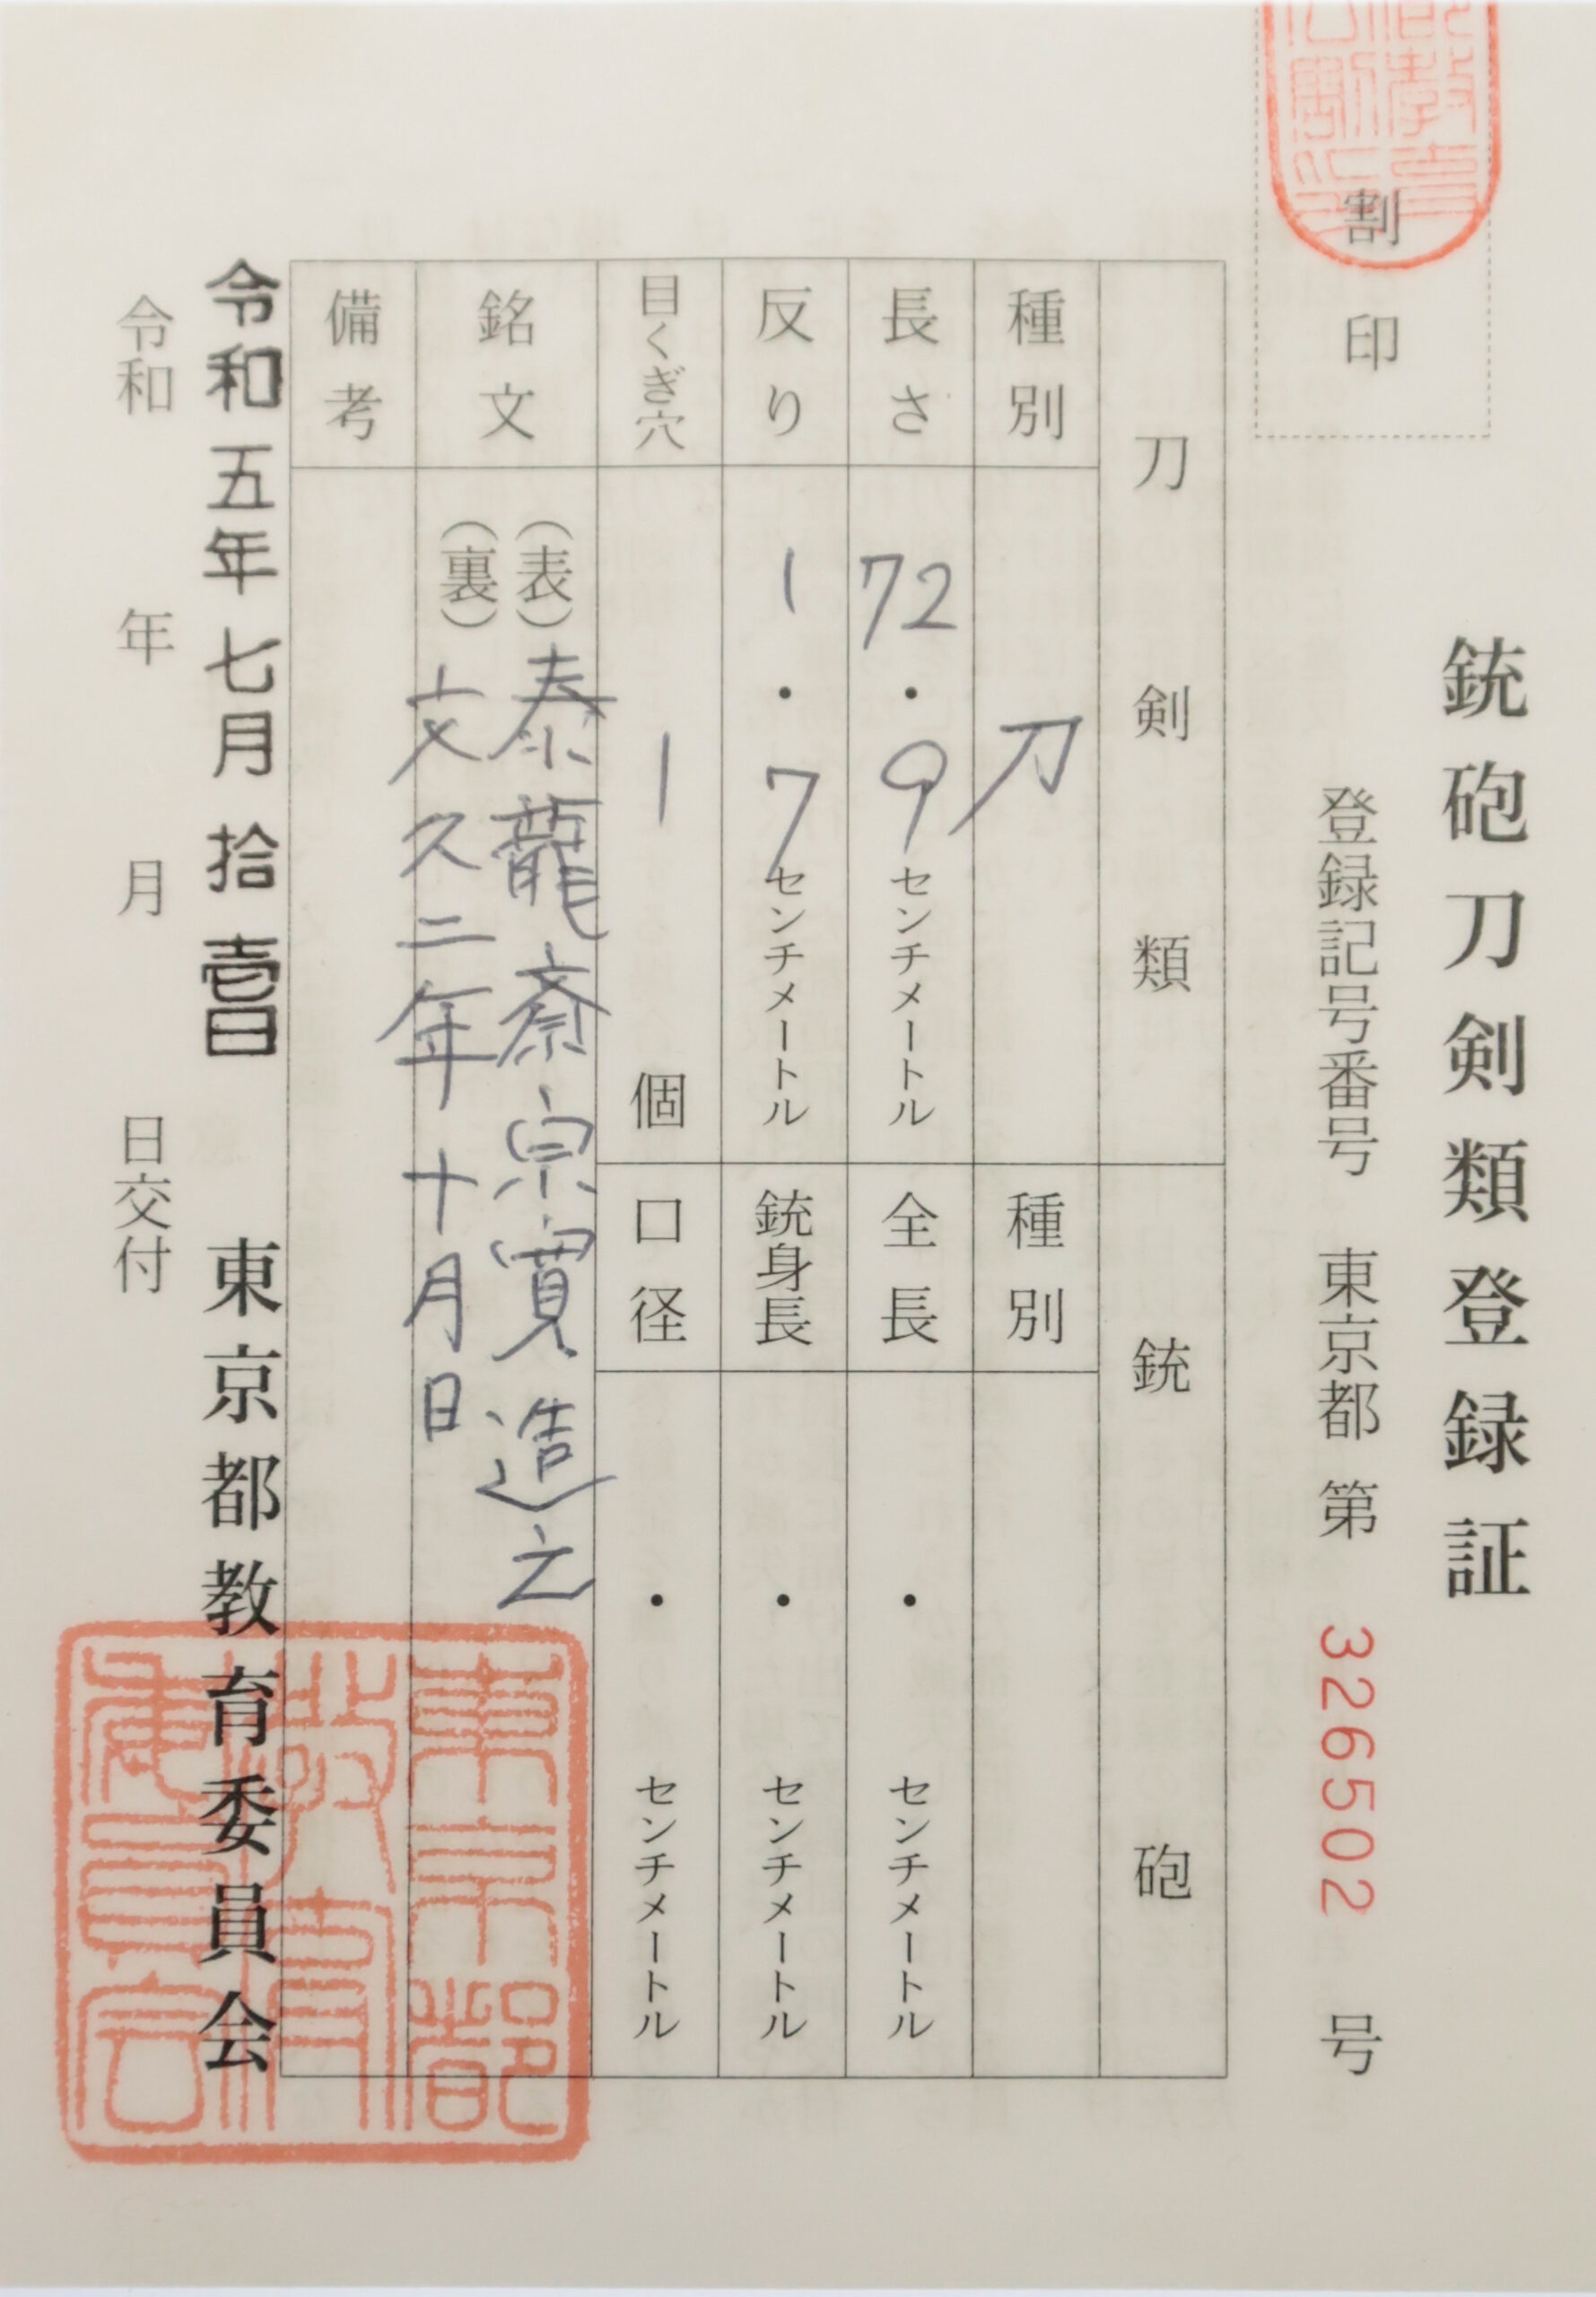 銃砲刀剣類登録証
割印
登録記号番号 東京都 第 326502 号
刀剣類
種別 刀
長さ 72.9センチメートル
反り 1.7センチメートル
目くぎ穴 1個
銘文
(表)泰龍斎宗寛造之
(裏)文久二年十月日
備考
銃砲
種別
全長 ・ センチメートル
銃身長 ・ センチメートル
口径 ・ センチメートル
令和五年七月拾壱日 東京都教育委員会
東京都教育委員会
令和 年 月 日交付